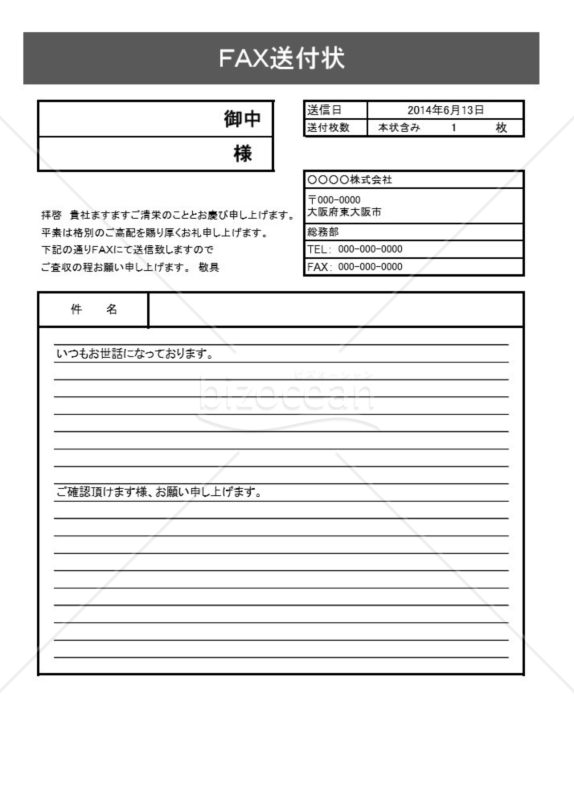 FAX送付状
御中
様
送信日 2014年6月13日
送付枚数 本状含み 1 枚
〇〇〇〇株式会社
〒000-0000
大阪府東大阪市
総務部
TEL: 000-000-0000
FAX: 000-000-0000
拝啓 貴社ますますご清栄のこととお慶び申し上げます。
平素は格別のご高配を賜り厚くお礼申し上げます。
下記の通りFAXにて送信致しますので
ご査収の程お願い申し上げます。 敬具
件 名
いつもお世話になっております。
ビズオーシャン
bizocean
ご確認頂けます様、お願い申し上げます。